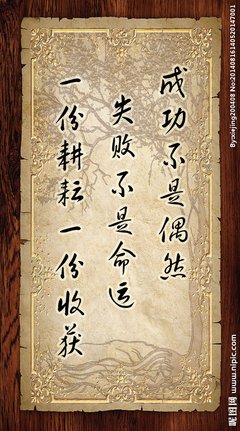 成功不是偶然
失败不是命运
一份耕耘一份收获
By:xiejing200408 No:20140816140520147001
昵图网 www.nipic.com